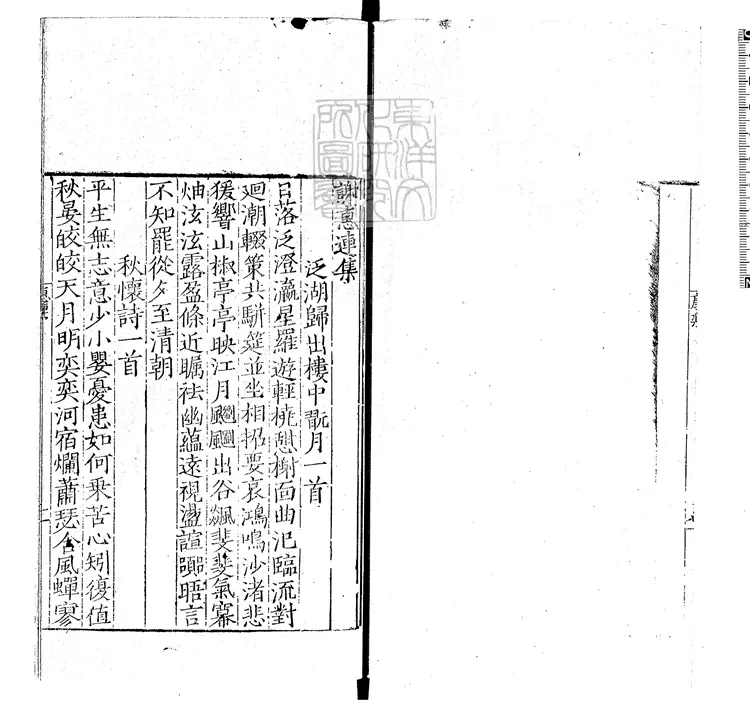 謝惠連集
泛湖歸出樓中翫月一首
日落泛澄瀛星羅遊輕橈憩榭面曲汜臨流對
廻潮輟策共駢筵並坐相招要哀鴻鳴沙渚悲
猨響山椒亭亭映江月飀飀出谷飆斐斐氣冪
岫泫泫露盈條近矚祛幽蘊遠視盪諠嚻晤言
不知罷從夕至清朝
秋懷詩一首
平生無志意少小嬰憂患如何乗苦心矧復值
秋晏皎皎天月明奕奕河宿爛蕭瑟含風蟬寥